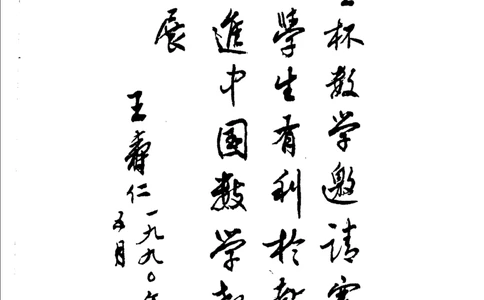 杯数学邀请
學生有利於
進中国数学
展
王寿仁
一九九〇年
五月